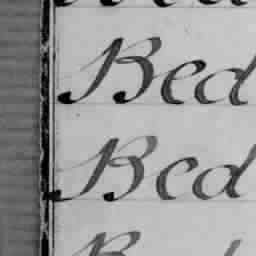 Bed
Bed